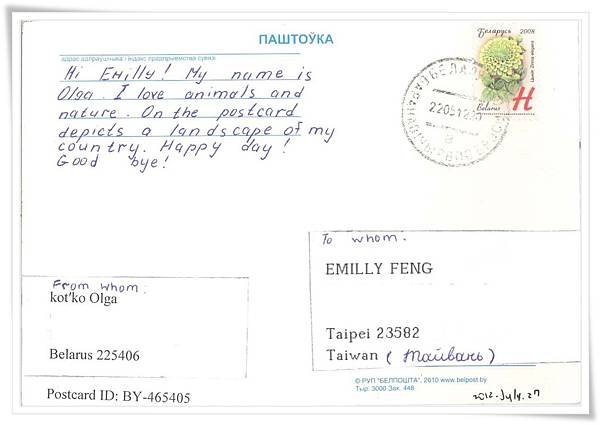 ПАШТОЎКА
адрас адпраўшчыка і індэкс прадпрыемства сувязі
Hi Emilly! My name is
Olga. I love animals and
nature. On the postcard
depicts a landscape of my
country. Happy day!
Good bye!
Беларусь 2008
Belarus H
220512
From whom:
kot'ko Olga
Belarus 225406
Postcard ID: BY-465405
To whom.
EMILLY FENG
Taipei 23582
Taiwan (Тайвань)
© РУП "БЕЛПОШТА", 2010 www.belpost.by
Тыр. 3000 Зак. 446
2012.July.27